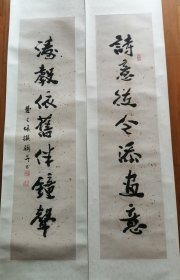 詩意從今添畫意
濤聲依舊伴鐘聲